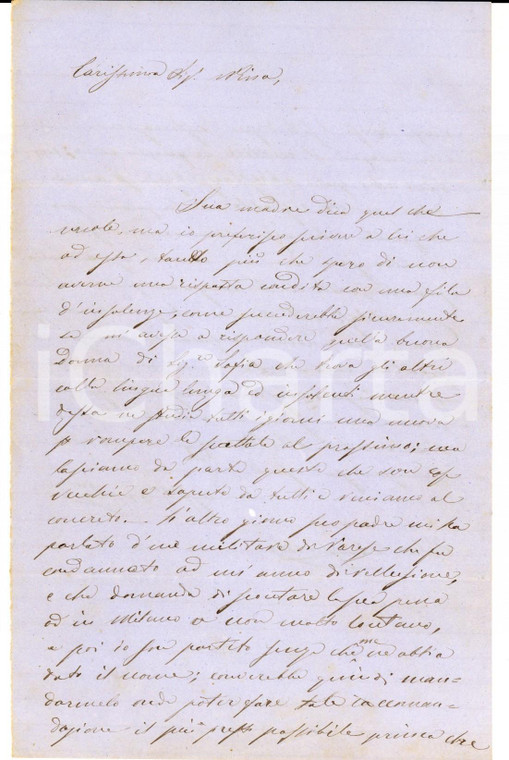 Carissima Sig.ª Nina,
Sua madre dica quel che
vuole, ma io preferisco scrivere a lei che
ad essa, tanto più che spero di non
averne una risposta condita con una fila
d'insolenze, come succederebbe sicuramente
se mi avesse a rispondere quella buona
Donna di Sig.ª Sofia che trova gli altri
colla lingua lunga ed insolenti mentre
essa ne studia tutti i giorni una nuova
p rompere le scattole al prossimo; ma
lasciamo da parte queste che son cose
vecchie e sapute da tutti e veniamo al
concreto. L'altro giorno suo padre mi ha
parlato d'un militare di Varese che fu
condannato ad un'anno di reclusione,
e che domanda di scontare la sua pena
od in Milano o non molto lontano,
e poi io son partito senza che me ne abbia
dato il nome; converrebbe quindi man-
darmelo onde poter fare tale raccoman-
dazione il più presto possibile prima che
iCharta